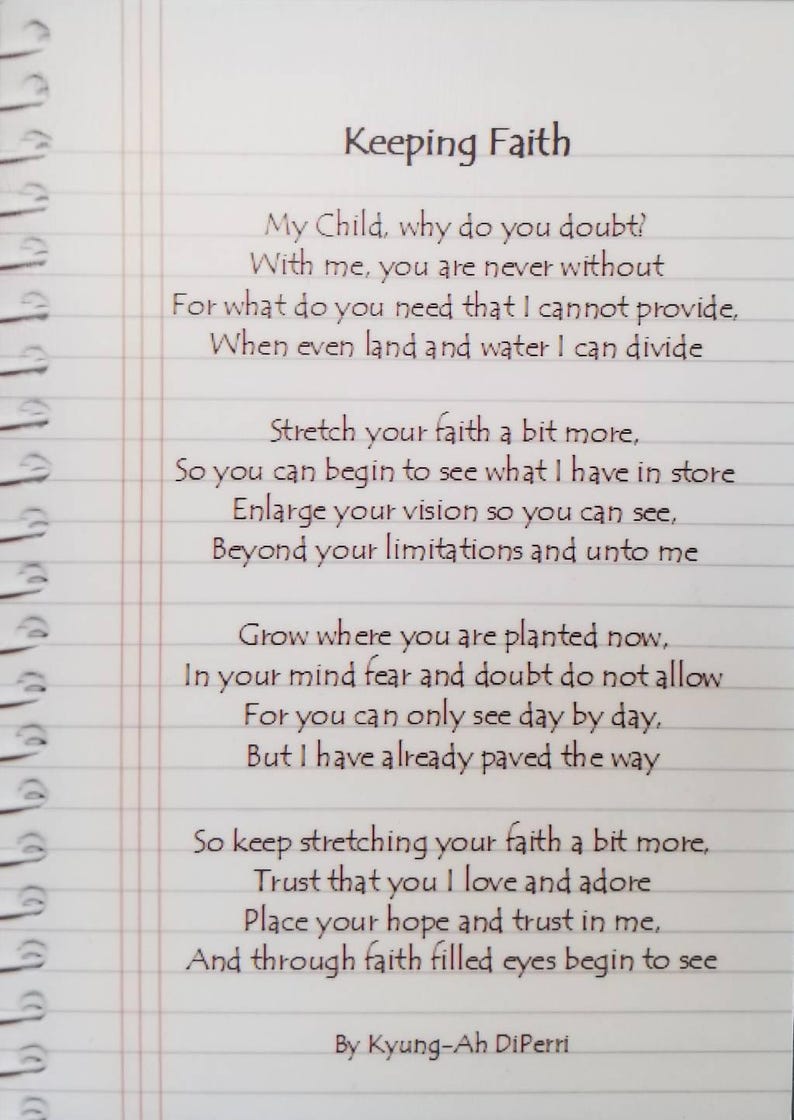 Keeping Faith
My Child, why do you doubt?
With me, you are never without
For what do you need that I cannot provide,
When even land and water I can divide
Stretch your faith a bit more,
So you can begin to see what I have in store
Enlarge your vision so you can see,
Beyond your limitations and unto me
Grow where you are planted now,
In your mind fear and doubt do not allow
For you can only see day by day,
But I have already paved the way
So keep stretching your faith a bit more,
Trust that you I love and adore
Place your hope and trust in me,
And through faith filled eyes begin to see
By Kyung-Ah DiPerri